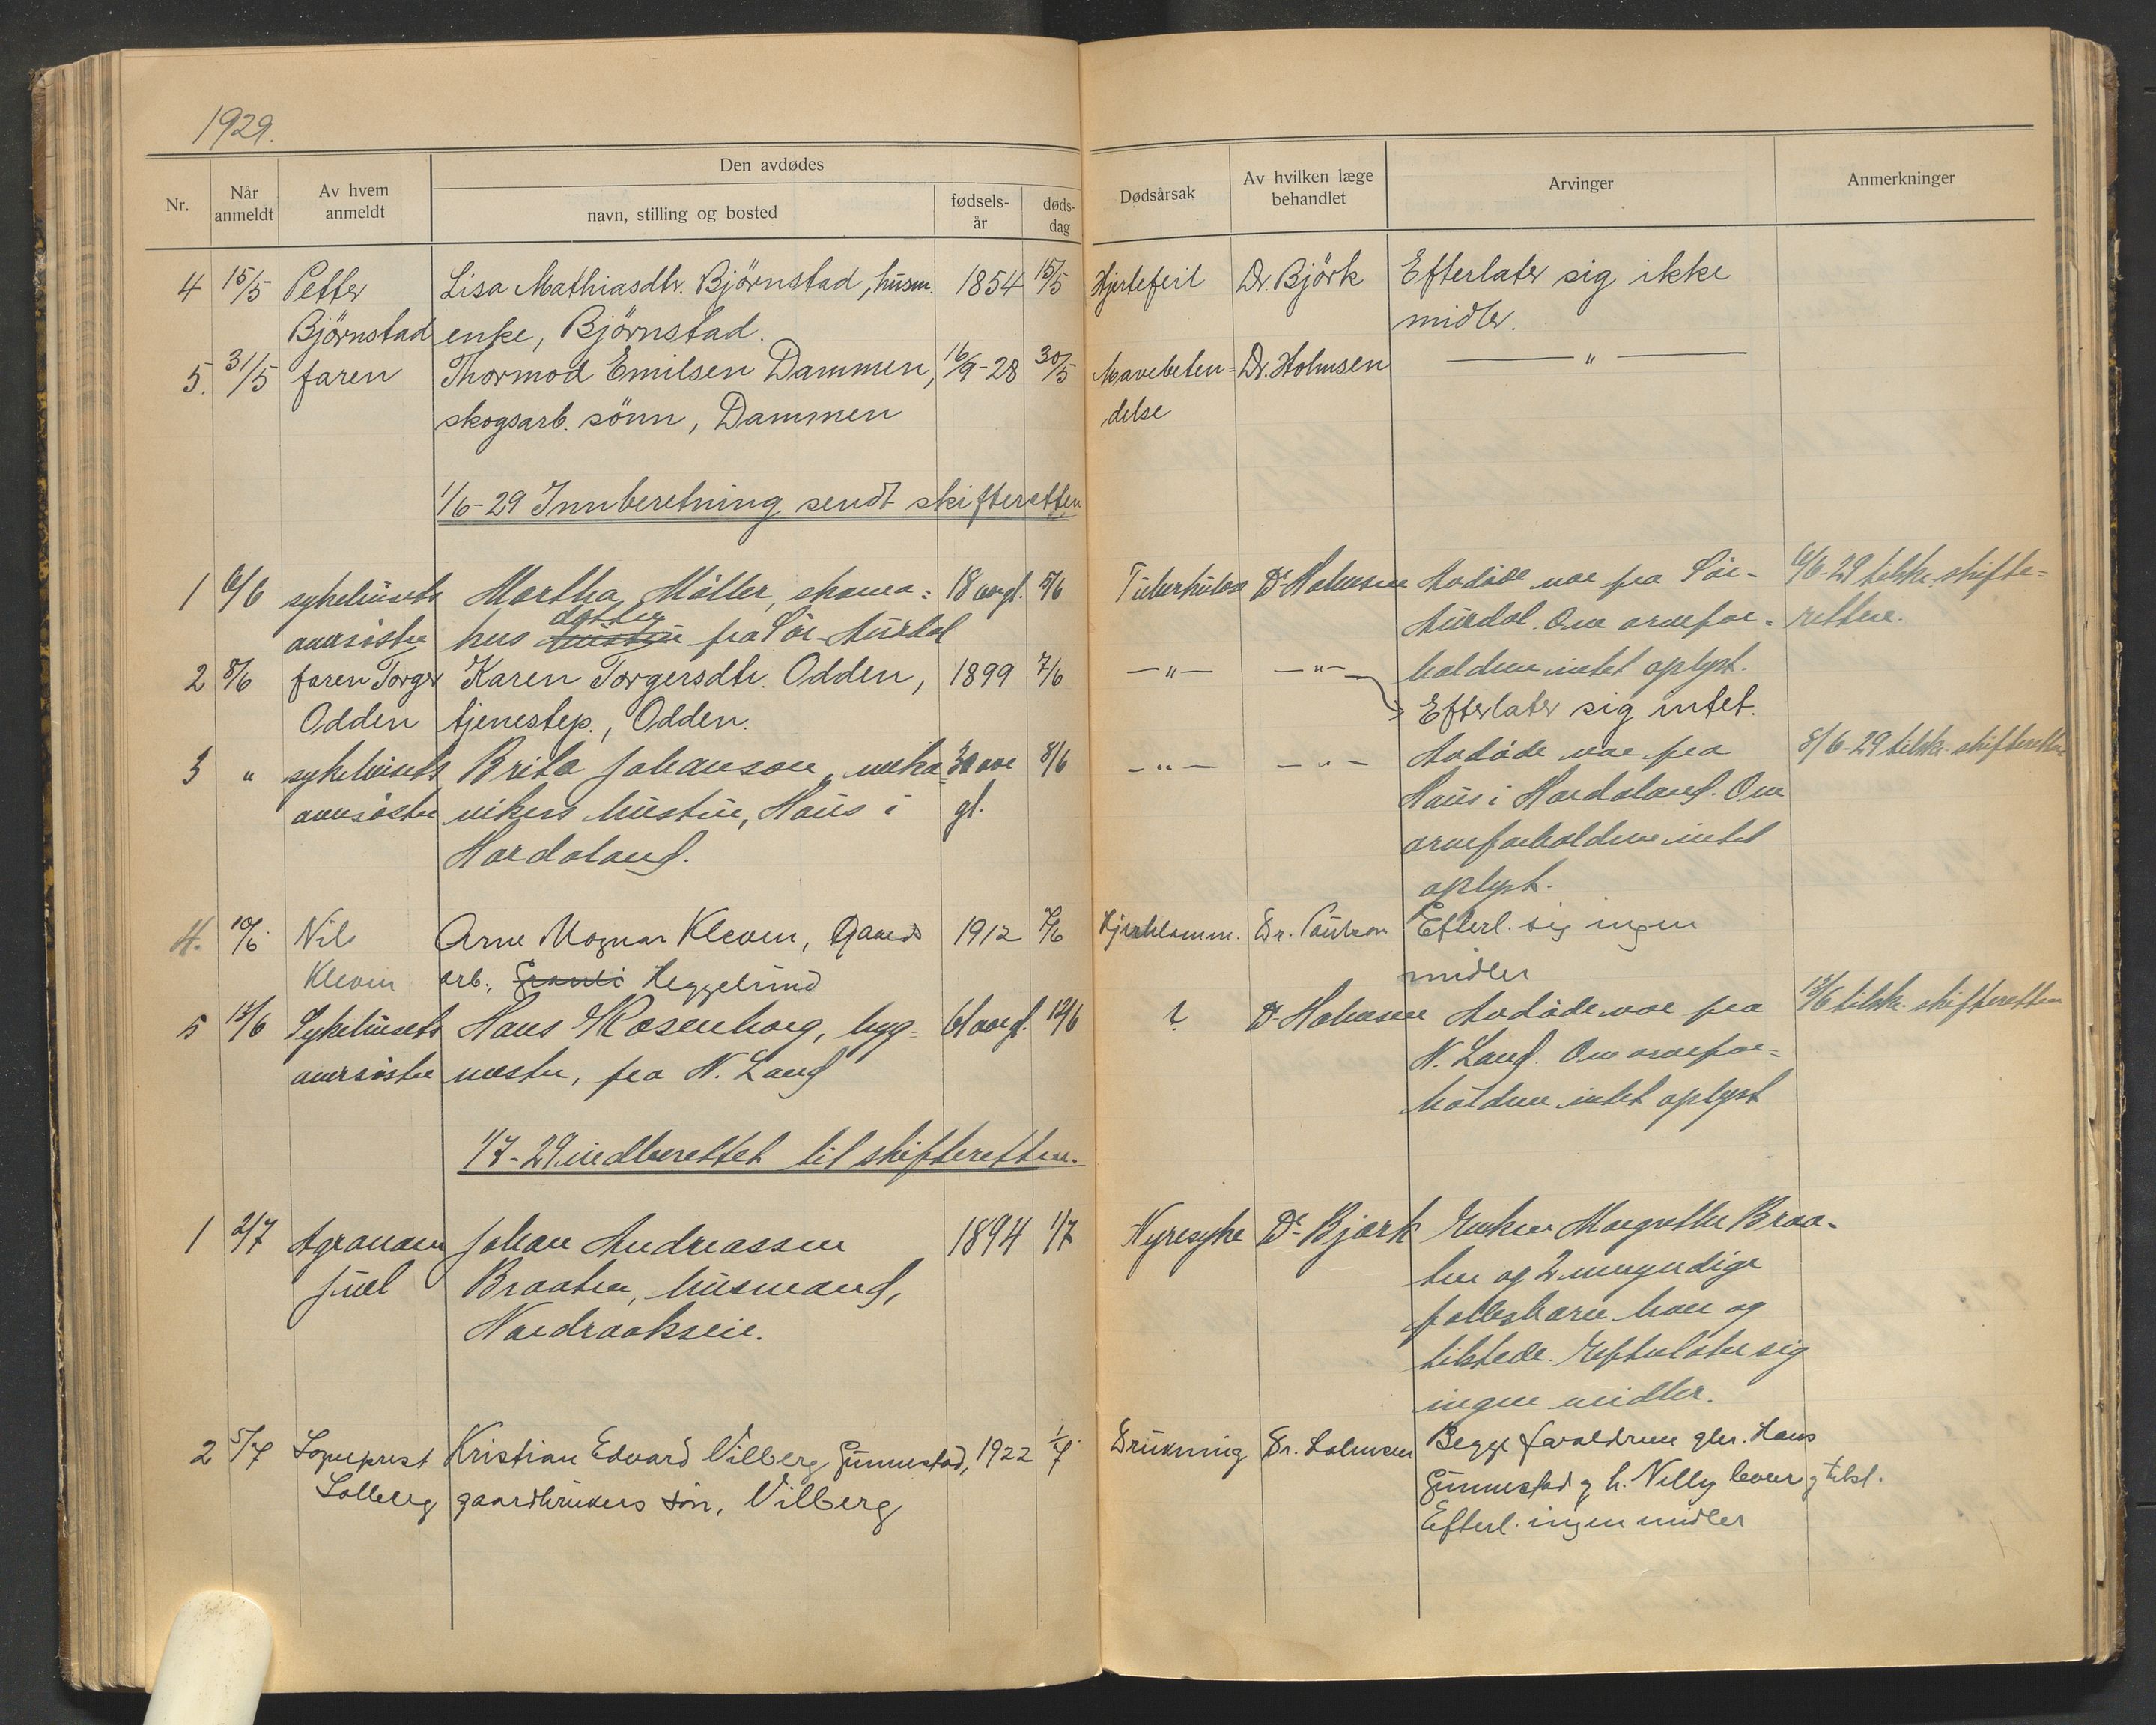 1929.
Nr.
Når anmeldt
Av hvem anmeldt
Den avdødes
navn, stilling og bosted
fødsels-år
døds-dag
Dødsårsak
Av hvilken læge behandlet
Arvinger
Anmerkninger
4 15/5 Petter Lisa Mathiasdtr. Björnstad, husm. 1854 15/5 Hjertefeil Dr. Björk Efterlater sig ikke
Björnstad enke, Björnstad. midler.
5. 31/5 faren Thormod Emilsen Dammen, 16/9-28 30/5 Mavebeten= Dr. Holmsen — " —
skogsarb. sönn, Dammen delse
1/6-29 Innberetning sendt skifteretten
1 6/6 sykehusets Martha Möller, skoma= 18 aar gl. 5/6 Tuberkulose Dr Holmsen Avdöde var fra Sör- 6/6-29 telske. skifte=
datter
oversöster kers hustru fra Sör-Aurdal Aurdal. Om arvefor- retten.
2 8/6 faren Torger Karen Torgersdtr. Odden, 1899 7/6 —"— —"— holdene intet oplyst.
Odden tjenestep., Odden. Efterlater sig intet.
3 " sykehusets Brita Johanson, meka= 30 aar 8/6 —"— —"— Avdöde var fra 8/6-29 telske. skifteretten
oversöster nikers hustru, Haus i gl. Haus i Hordaland. Om
Hordaland. arveforholdene intet
oplyst.
4. 10/6 Nils Arne Magnar Kleven, Gaards 1912 7/6 Hjernebetenn. Dr. Paulson Efterl. sig ingen
Kleven arb., Heggelund midler
5 13/6 Sykehusets Hans Rosenborg, byg= 61 aar gl. 12/6 ? Dr Holmsen Avdöde var fra 13/6 telske. skifteretten
oversöster mester, fra N. Land N. Land. Om arvefor=
holdene intet oplyst
1/7-29 inedberettet til skifteretten.
1 2/7 Agronom Johan Andreassen 1894 1/7 Nyresyke Dr Bjørk Enken Margrethe Braa-
Juel Braaten, husmand, ten og 2 umyndige
Nordraakseie. fellesbarn lever og
tilstede. Efterlater sig
ingen midler.
2 5/7 Sogneprest Kristian Edvard Vilberg Gunnestad, 1922 1/7 Drukning Dr. Holmsen Begge foreldrene gbr. Hans
Solberg gaardbrukers sön, Vilberg Gunnestad og h. Nelly lever og tilst.
Efterl. ingen midler